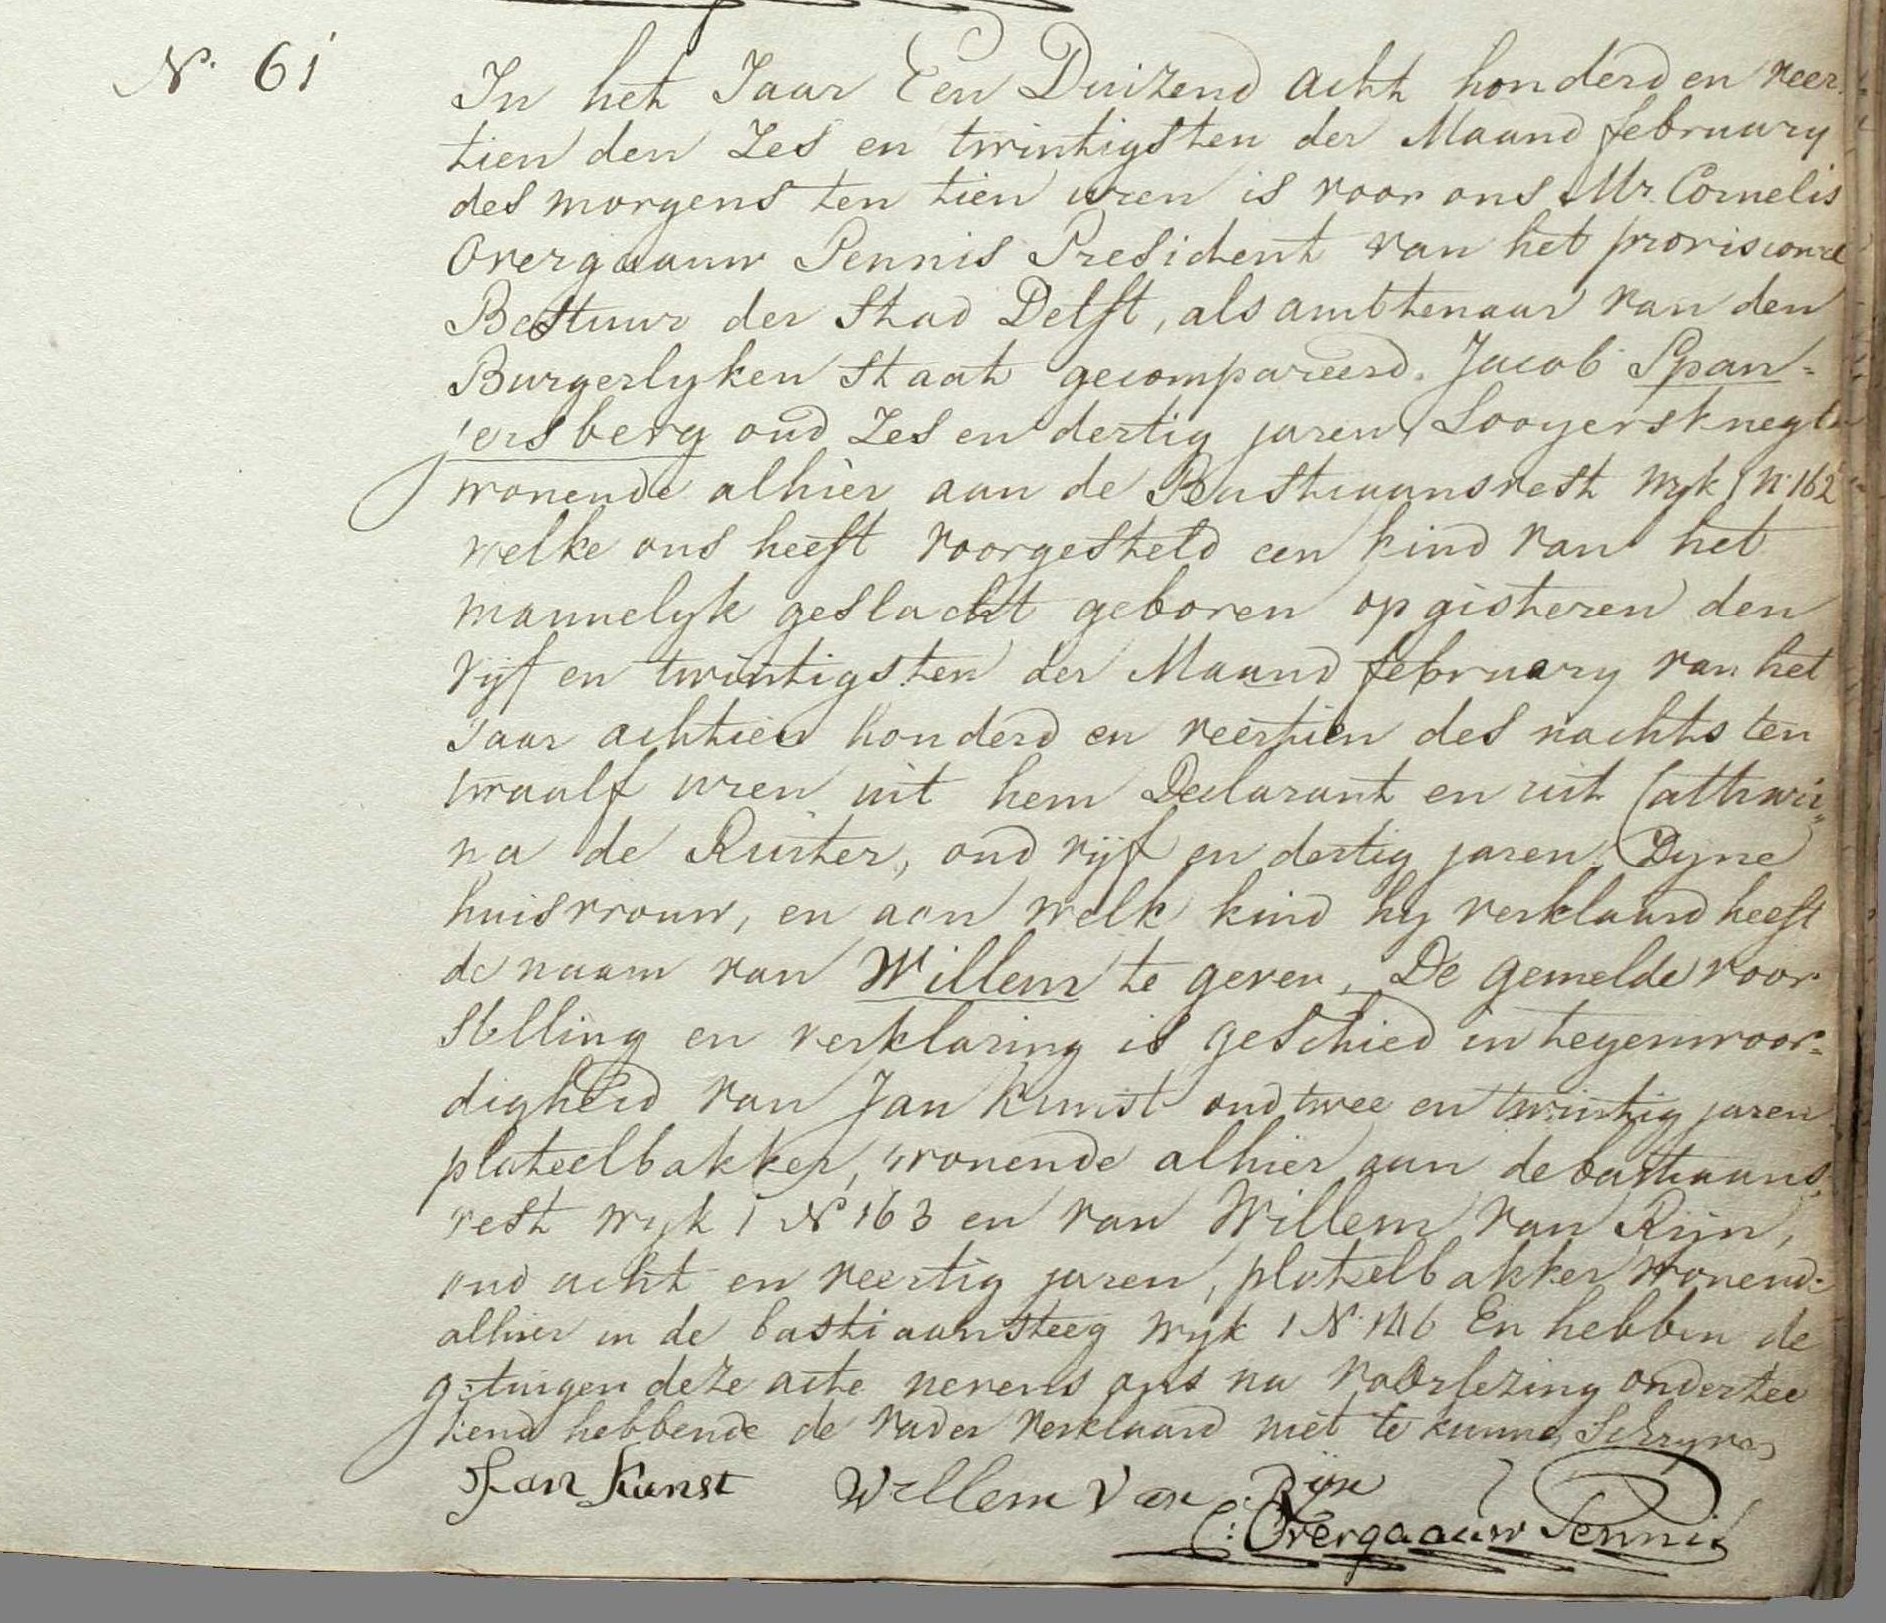 N. 61
In het Jaar Een Duizend acht honderd en veer
tien den Zes en twintigsten der Maand february
des morgens ten tien uren is voor ons Mr. Cornelis
Overgaauw Pennis President van het provisioneel
Bestuur der Stad Delft, als ambtenaar van den
Burgerlyken Staat gecompareerd. Jacob Span-
jersberg oud Zes en dertig jaren, Looyersknegt
wonende alhier aan de Bastiaansvest wyk 1 N. 162
welke ons heeft voorgesteld een kind van het
mannelyk geslacht geboren op gisteren den
vyf en twintigsten der Maand february van het
Jaar achtien honderd en veertien des nachts ten
twaalf uren uit hem Declarant en uit Cathari-
na de Ruiter, oud vyf en dertig jaren, Zyne
huisvrouw, en aan welk kind hy verklaard heeft
de naam van Willem te geven, De gemelde voor
stelling en verklaring is geschied in tegenwoor-
digheid van Jan Kunst oud twee en twintig jaren
plateelbakker, wonende alhier aan de bastiaans
vest wyk 1 N 163 en van Willem van Rijn,
oud acht en veertig jaren, plateelbakker wonende
alhier in de bastiaansteeg wyk 1 N. 146 En hebben de
getuigen deze acte nevens ons na voorlezing ondertee
kend hebbende de vader verklaard niet te kunnen Schryven
Jan Kunst Willem Van Rijn
C: Overgaauw Pennis